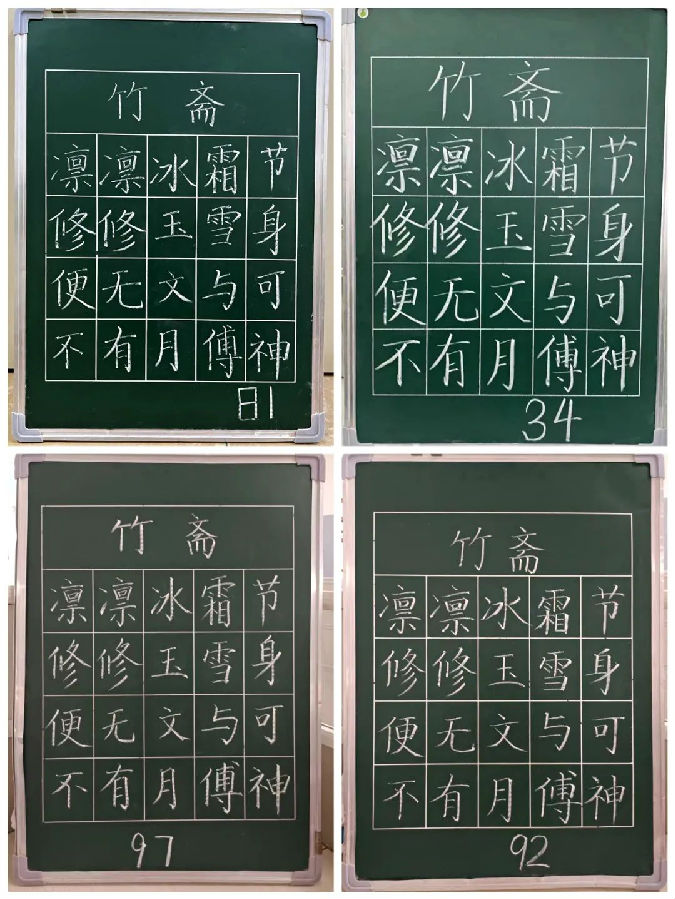 竹 斋
凛凛冰霜节
修修玉雪身
便无文与可
不有月傅神
81
竹 斋
凛凛冰霜节
修修玉雪身
便无文与可
不有月傅神
34
竹 斋
凛凛冰霜节
修修玉雪身
便无文与可
不有月傅神
97
竹 斋
凛凛冰霜节
修修玉雪身
便无文与可
不有月傅神
92